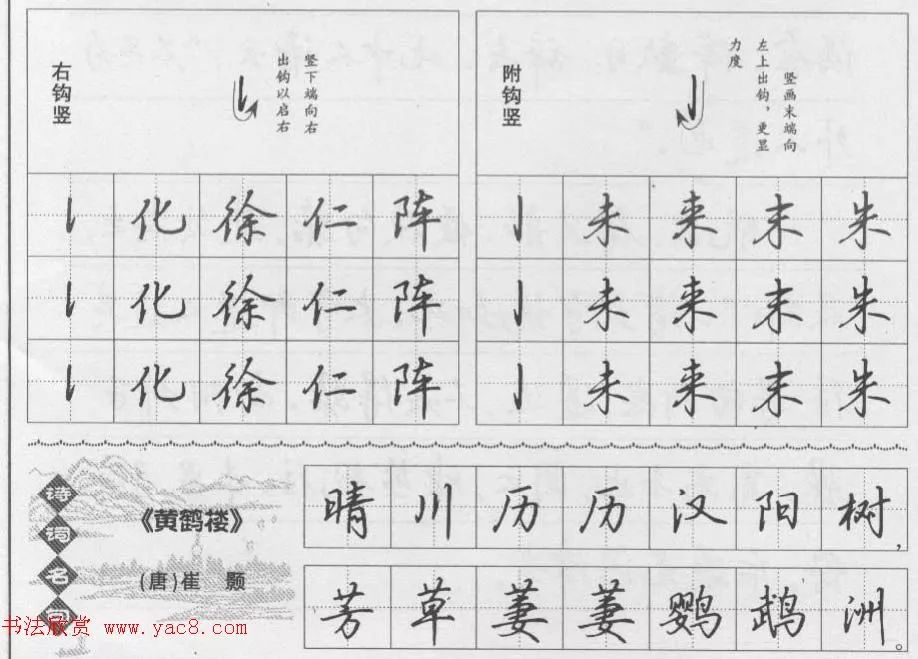 右钩竖
竖下端向右
出钩以启右
附钩竖
竖画末端向
左上出钩，更显
力度
化 徐 仁 阵
未 来 末 朱
化 徐 仁 阵
未 来 末 朱
化 徐 仁 阵
未 来 末 朱
诗词名句
《黄鹤楼》
(唐)崔 颢
晴川历历汉阳树，
芳草萋萋鹦鹉洲。
书法欣赏 www.yac8.com